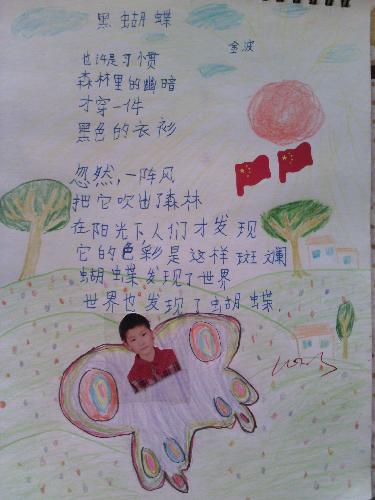 黑蝴蝶
金波
也许是习惯
森林里的幽暗
才穿一件
黑色的衣衫
忽然,一阵风
把它吹出了森林
在阳光下,人们才发现
它的色彩是这样斑斓
蝴蝶发现了世界
世界也发现了蝴蝶